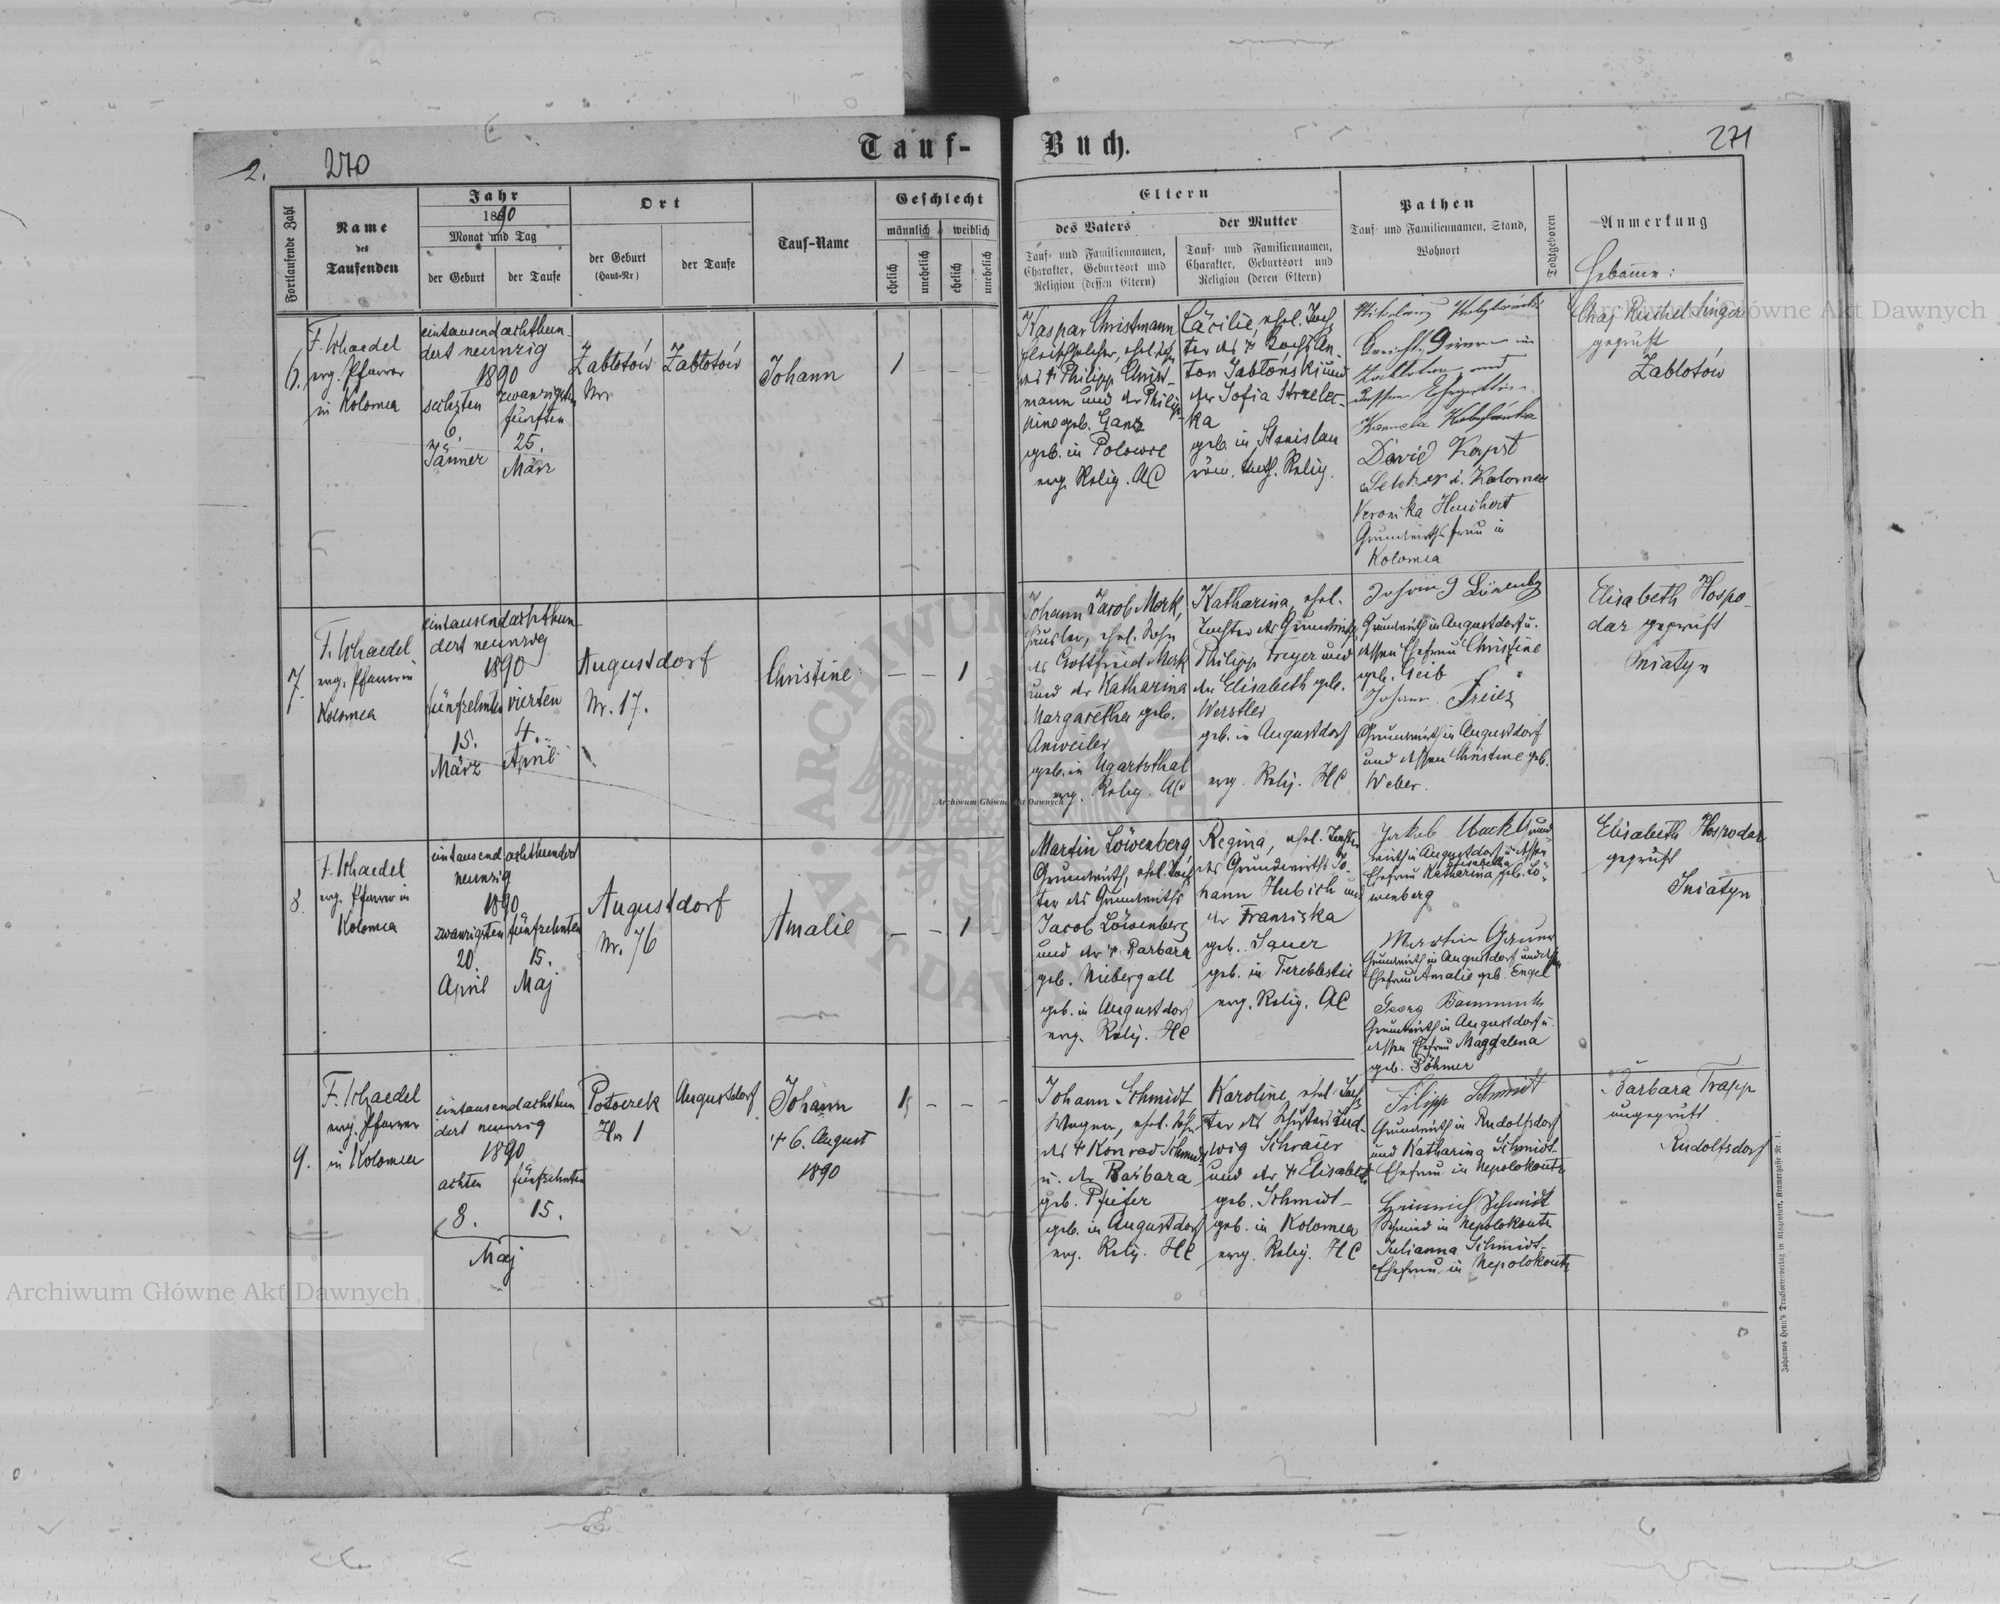 2.
270
Tauf-
Buch.
271
Fortlaufende Zahl
Name
des
Taufenden
Jahr
1890
Monat und Tag
der Geburt
der Taufe
Ort
der Geburt
(Haus-Nr)
der Taufe
Tauf-Name
Geschlecht
männlich
weiblich
ehelich
unehelich
ehelich
unehelich
Eltern
des Vaters
Tauf- und Familiennamen,
Charakter, Geburtsort und
Religion (dessen Eltern)
der Mutter
Tauf- und Familiennamen,
Charakter, Geburtsort und
Religion (deren Eltern)
Pathen
Tauf- und Familiennamen, Stand,
Wohnort
Todtgeboren
Anmerkung
Hebamme:
6.
evg. Pfarrer
in Kolomea
eintausendachthun-
dert neunzig
1890
sechzten
6.
Jänner
zwanzigsten
fünften
25.
März
Zabłotów
Nr.
Zabłotów
Johann
1
Kaspar Christmann
des † Philipp Christ-
mann und der Philip-
pine geb. Ganz
geb. in
evg. Relig. AC
Cäcilie, ehel. Toch-
ter des † An-
ton Jabłoński und
der Sofia Strzelec-
ka
geb. in Stanislau
röm. kath. Relig.
David
Kolomea
Veronika
Grundwirthsfrau in
Kolomea
Chaj Ruchel Singer
geprüft
Zabłotów
7.
evg. Pfarrer in
Kolomea
eintausendachthun-
dert neunzig
1890
fünfzehnten
15.
März
vierten
4.
April
Augustdorf
Nr. 17.
Christine
— — 1
Johann Jacob Merk,
Häusler, ehel. Sohn
des Gottfried Merk
und der Katharina
Margaretha geb.
Anweiler
geb. in Ugartsthal
evg. Relig. AC
Katharina, ehel.
Tochter des Grundwirths
Philipp Freyer und
der Elisabeth geb.
Werstler
geb. in Augustdorf
evg. Relig. HC
Grundwirth in Augustdorf u.
dessen Ehefrau Christine
geb. Geib
Johann
Grundwirth in Augustdorf
und dessen Christine geb.
Weber.
Elisabeth Hospo-
dar geprüft
Sniatyn
8.
evg. Pfarrer in
Kolomea
eintausend achthundert
neunzig
1890
zwanzigsten
20.
April
fünfzehnten
15.
Maj
Augustdorf
Nr. 76
Amalie
— — 1
Martin Löwenberg
Grundwirth,
des Grundwirths
Jacob Löwenberg
und der † Barbara
geb. Niebergall
geb. in Augustdorf
evg. Relig. HC
Regina, ehel. Tochter
des Grundwirths Jo-
hann Hubich und
der Franziska
geb. Sauer
geb. in Tereblestie
evg. Relig. AC
Jakob
wirth in Augustdorf u. dessen
Ehefrau Katharina Elisabetha geb. Lö-
wenberg
Martin
Grundwirth in Augustdorf und dessen
Ehefrau Amalie geb. Engel
Georg
Grundwirth in Augustdorf u.
dessen Ehefrau Magdalena
geb. Böhmer
Elisabeth Hospodar
geprüft
Sniatyn
9.
evg. Pfarrer
in Kolomea
eintausendachthun
dert neunzig
1890
achten
8.
fünfzehnten
15.
Maj
Potoczek
Hnr 1
Augustdorf
Johann
† 6. August
1890
1 — — —
Johann Schmidt
Wagner, ehel. Sohn
des † Konrad Schmidt
u. der Barbara
geb. Pfeifer
geb. in Augustdorf
evg. Relig. HC
Karoline, ehel. Toch-
ter des Schusters Lud-
wig Schraier
und der † Elisabeth
geb. Schmidt
geb. in Kolomea
evg. Relig. HC
Filipp Schmidt
Grundwirth in Rudolfsdorf
und Katharina Schmidt
Ehefrau in Nepolokoutz
Heinrich Schmidt
Schmied in Nepolokoutz
Julianna Schmidt
Ehefrau in Nepolokoutz
Barbara Trapp
ungeprüft
Rudolfsdorf
Archiwum Główne Akt Dawnych
Archiwum Główne Akt Dawnych
Archiwum Główne Akt Dawnych